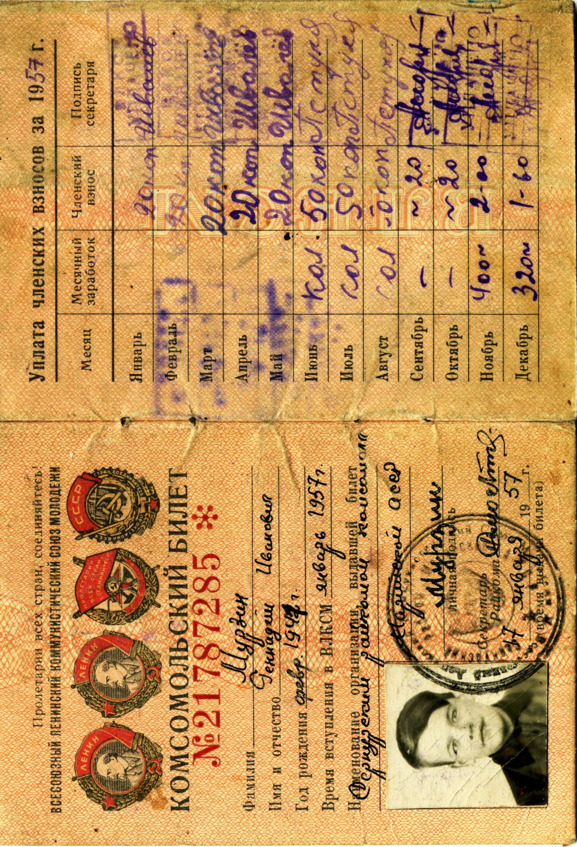 Пролетарии всех стран, соединяйтесь!
ВСЕСОЮЗНЫЙ ЛЕНИНСКИЙ КОММУНИСТИЧЕСКИЙ СОЮЗ МОЛОДЕЖИ
ЛЕНИН ЛЕНИН СССР
КОМСОМОЛЬСКИЙ БИЛЕТ
№21787285 *
Фамилия Мурзин
Имя и отчество Геннадий Иванович
Год рождения февр. г.
Время вступления в ВЛКСМ январь 1957 г
Наименование организации, выдавшей билет
райкомом комсомола
Марийской асср
Мурзин
личная подпись
Секретарь
Райкома
января 1957 г.
(время выдачи билета)
Уплата членских взносов за 1957 г.
Месяц Месячный заработок Членский взнос Подпись секретаря
Январь 20 коп Швалёв
Февраль 20 коп
Март 20 коп Швалёв
Апрель 20 коп Швалёв
Май 20 коп Швалёв
Июнь кол 50 коп
Июль кол 50 коп
Август кол 50 коп
Сентябрь — ~ 20
Октябрь — ~ 20
Ноябрь 400~ 2-00
Декабрь 320~ 1-60